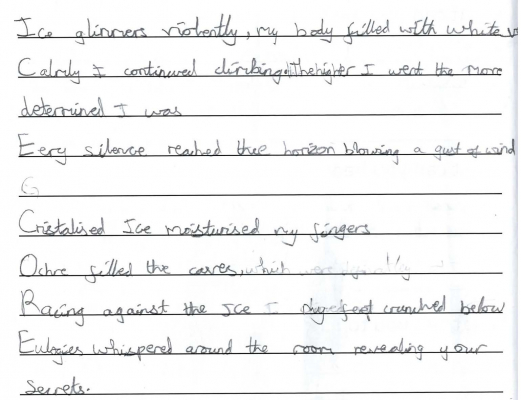 Ice glimmers violently, my body filled with white
Calmly I continued climbing. The higher I went the more
determined I was
Eery silence reached thee horizon blowing a gust of wind
G
Cristalised Ice moisturised my fingers
Ochre filled the caves, which were
Racing against the Ice I my feet crunched below
Eulogies whispered around the room revealing your
Secrets.